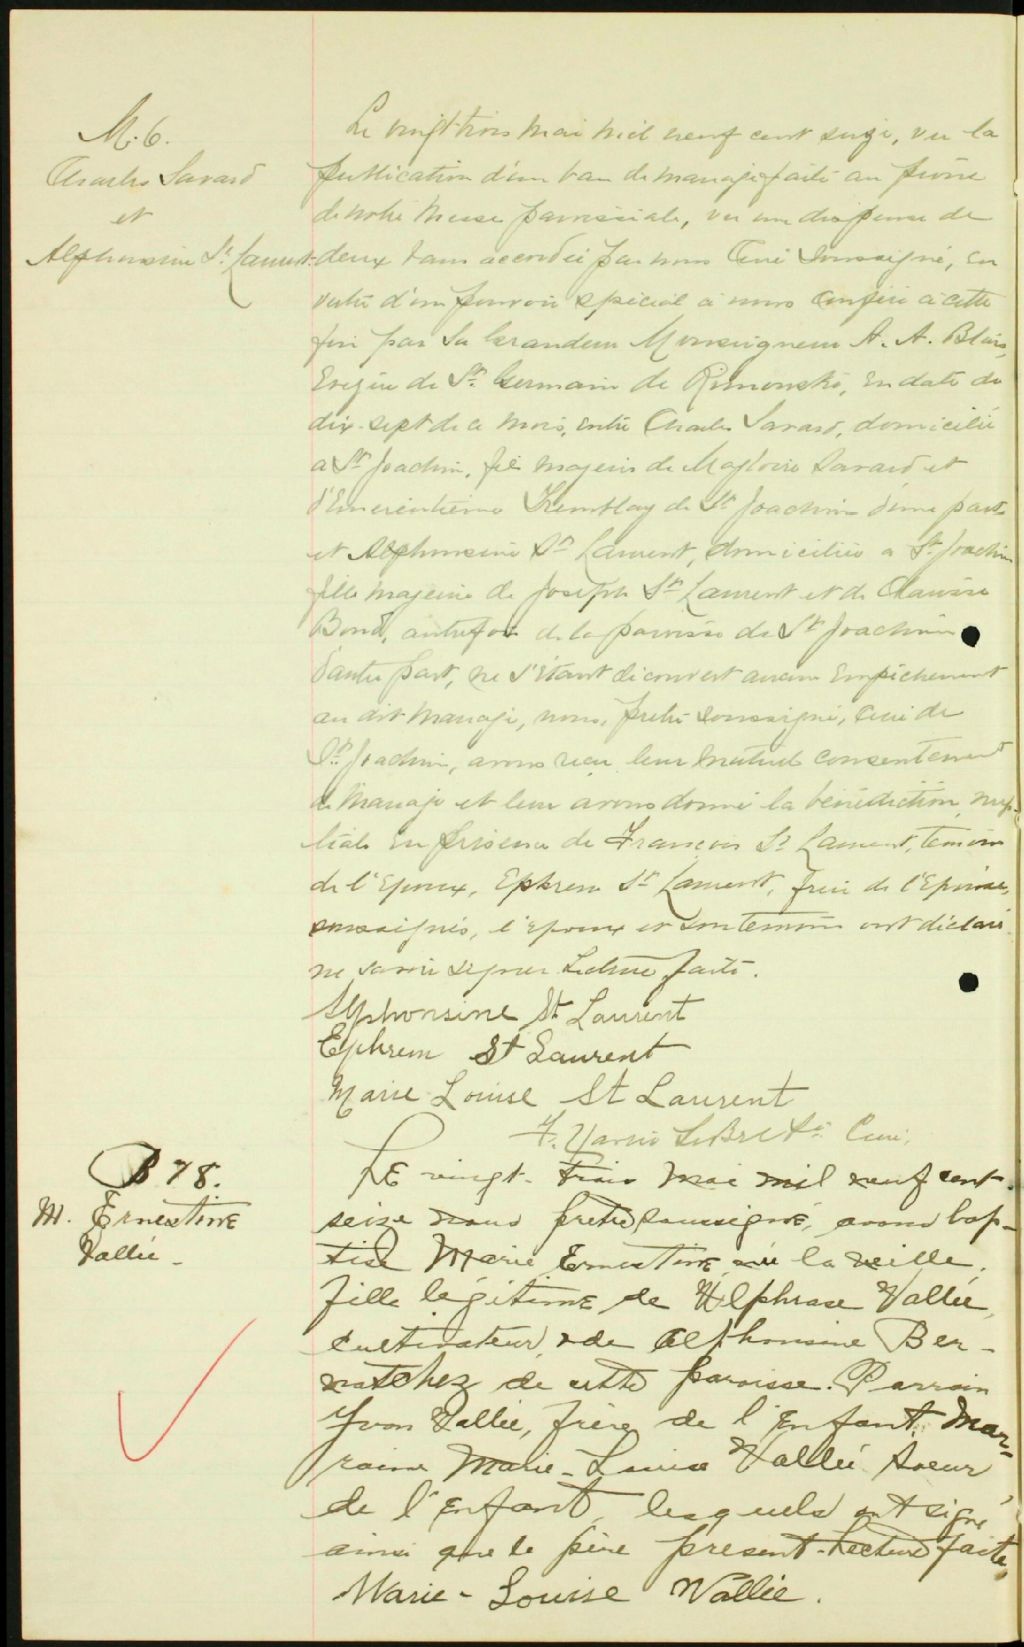 M. 6.
Charles Savard
et
Alphonsine St Laurent
Le vingt-trois mai mil neuf cent seize, vu la
publication d'un ban de mariage faite au prône
de notre messe paroissiale, vu une dispense de
deux bans accordée par nous Curé soussigné, en
vertu d'un pouvoir spécial à nous conféré à cette
fin par Sa Grandeur Monseigneur A. A. Blais,
Evêque de St Germain de Rimouski, en date du
dix-sept de ce mois, entre Charles Savard, domicilié
a St Joachim, fils majeur de Magloire Savard et
d'Emérentienne Tremblay de St Joachim d'une part
et Alphonsine St Laurent, domiciliée a St Joachim
fille majeure de Joseph St Laurent et de
Bond, autrefois de la paroisse de St Joachim
d'autre part, ne s'étant découvert aucun empêchement
au dit mariage, nous, prêtre soussigné, curé de
St Joachim, avons reçu leur mutuel consentement
de mariage et leur avons donné la bénédiction nup-
tiale en présence de François St Laurent, témoin
de l'Epoux, Ephrem St Laurent, frère de l'Epouse,
soussignés, l'époux et son témoin ont déclaré
ne savoir signer Lecture faite.
Alphonsine St Laurent
Ephrem St Laurent
Marie Louise St Laurent
Curé.
B 78.
M. Ernestine
Vallée -
LE vingt-trois mai mil neuf cent-
seize nous prêtre soussigné, avons bap-
tisé Marie Ernestine, née la veille,
fille légitime de Ulphrase Vallée,
cultivateur, & de Alphonsine Ber-
natchez de cette paroisse. Parrain
Yvon Vallée, frère de l'Enfant, Mar-
raine Marie-Louise Vallée soeur
de l'enfant, lesquels ont signé,
ainsi que le père présent. Lecture faite,
Marie-Louise Vallée.